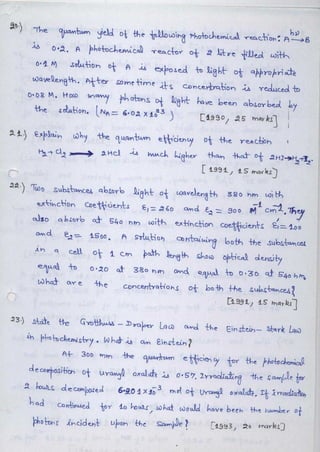 20.) The quantum yield of the following Photochemical reaction: A hν→ B
is 0.2. A photochemical reactor of 2 litre filled with
0.1 M solution of A is exposed to light of appropriate
wavelength. After some time its concentration is reduced to
0.08 M. How many photons of light have been absorbed by
the solution. [NA = 6.02 x 10²³] [1990, 25 marks]
21.) Explain why the quantum efficiency of the reaction
H₂ + Cl₂ → 2HCl is much higher than that of
[1991, 15 marks]
22.) Two substances absorb light of wavelength 380 nm with
extinction coefficients ε₁ = 260 and ε₂ = 900 M⁻¹ cm⁻¹. They
also absorb at 540 nm with extinction coefficients ε₁ = 100
and ε₂ = 1500. A solution containing both the substances
in a cell of 1 cm path length show optical density
equal to 0.20 at 380 nm and equal to 0.30 at 540 nm.
What are the concentrations of both the substances?
[1991, 15 marks]
23.) State the Grotthuss – Draper Law and the Einstein – Stark Law
in photochemistry. What is an Einstein?
At 300 nm the quantum efficiency for the photochemical
decomposition of uranyl oxalate is 0.57. Irradiating the sample for
2 hours decomposed 6.201 x 10⁻³ mol of uranyl oxalate. If irradiation
had continued for 10 hours, what would have been the number of
photons incident upon the sample? [1993, 20 marks]